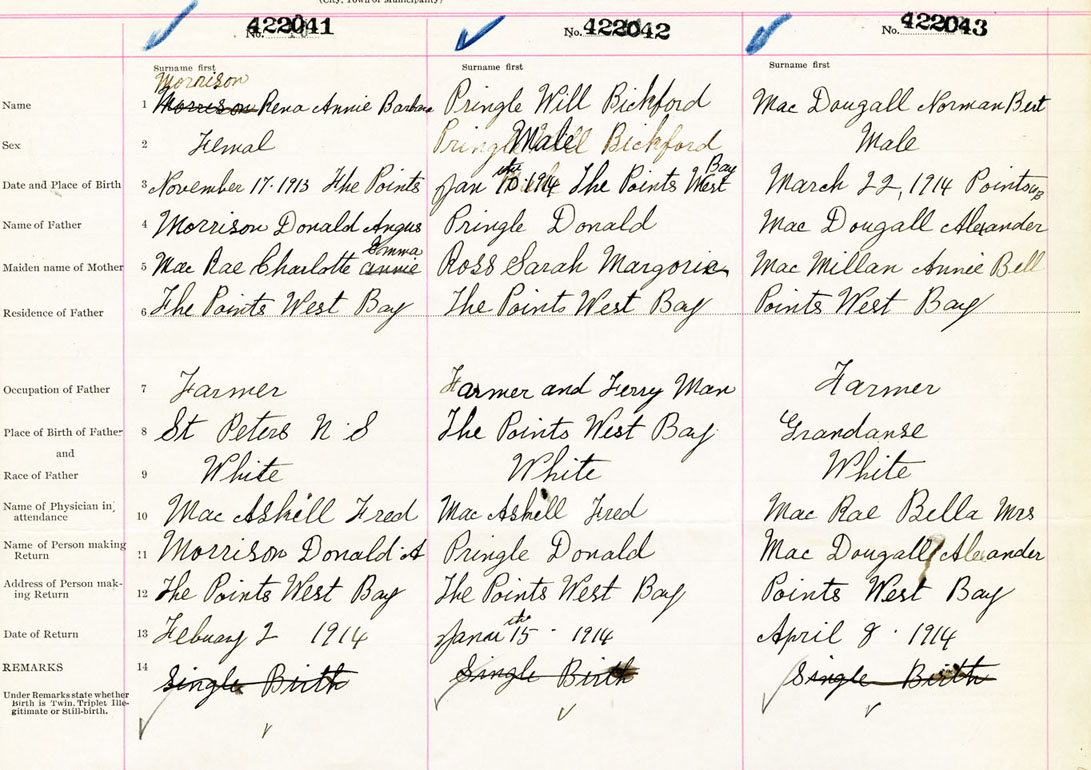 (City, Town or Municipality)
No. 422041 No. 422042 No. 422043
Surname first Surname first Surname first
Morrison
Name 1 Morrison Rena Annie Barbara Pringle Will Bickford Mac Dougall Norman Bert
Sex 2 Femal Pringle Will Bickford Male Male
Date and Place of Birth 3 November 17. 1913 The Points Jan 10th 1914 The Points West Bay March 22, 1914 Points WB
Name of Father 4 Morrison Donald Angus Pringle Donald Mac Dougall Alexander
Maiden name of Mother 5 Mac Rae Charlotte Annie Emma Ross Sarah Margorie Mac Millan Annie Bell
Residence of Father 6 The Points West Bay The Points West Bay Points West Bay
Occupation of Father 7 Farmer Farmer and Ferry Man Farmer
Place of Birth of Father 8 St Peters N S The Points West Bay Grandanse
and
Race of Father 9 White White White
Name of Physician in attendance 10 Mac Askill Fred Mac Askill Fred Mac Rae Bella Mrs
Name of Person making Return 11 Morrison Donald A Pringle Donald Mac Dougall Alexander
Address of Person making Return 12 The Points West Bay The Points West Bay Points West Bay
Date of Return 13 Febuary 2 1914 Janu 15th 1914 April 8. 1914
REMARKS 14 Single Birth Single Birth Single Birth
Under Remarks state whether
Birth is Twin, Triplet Ille-
gitimate or Still-birth.